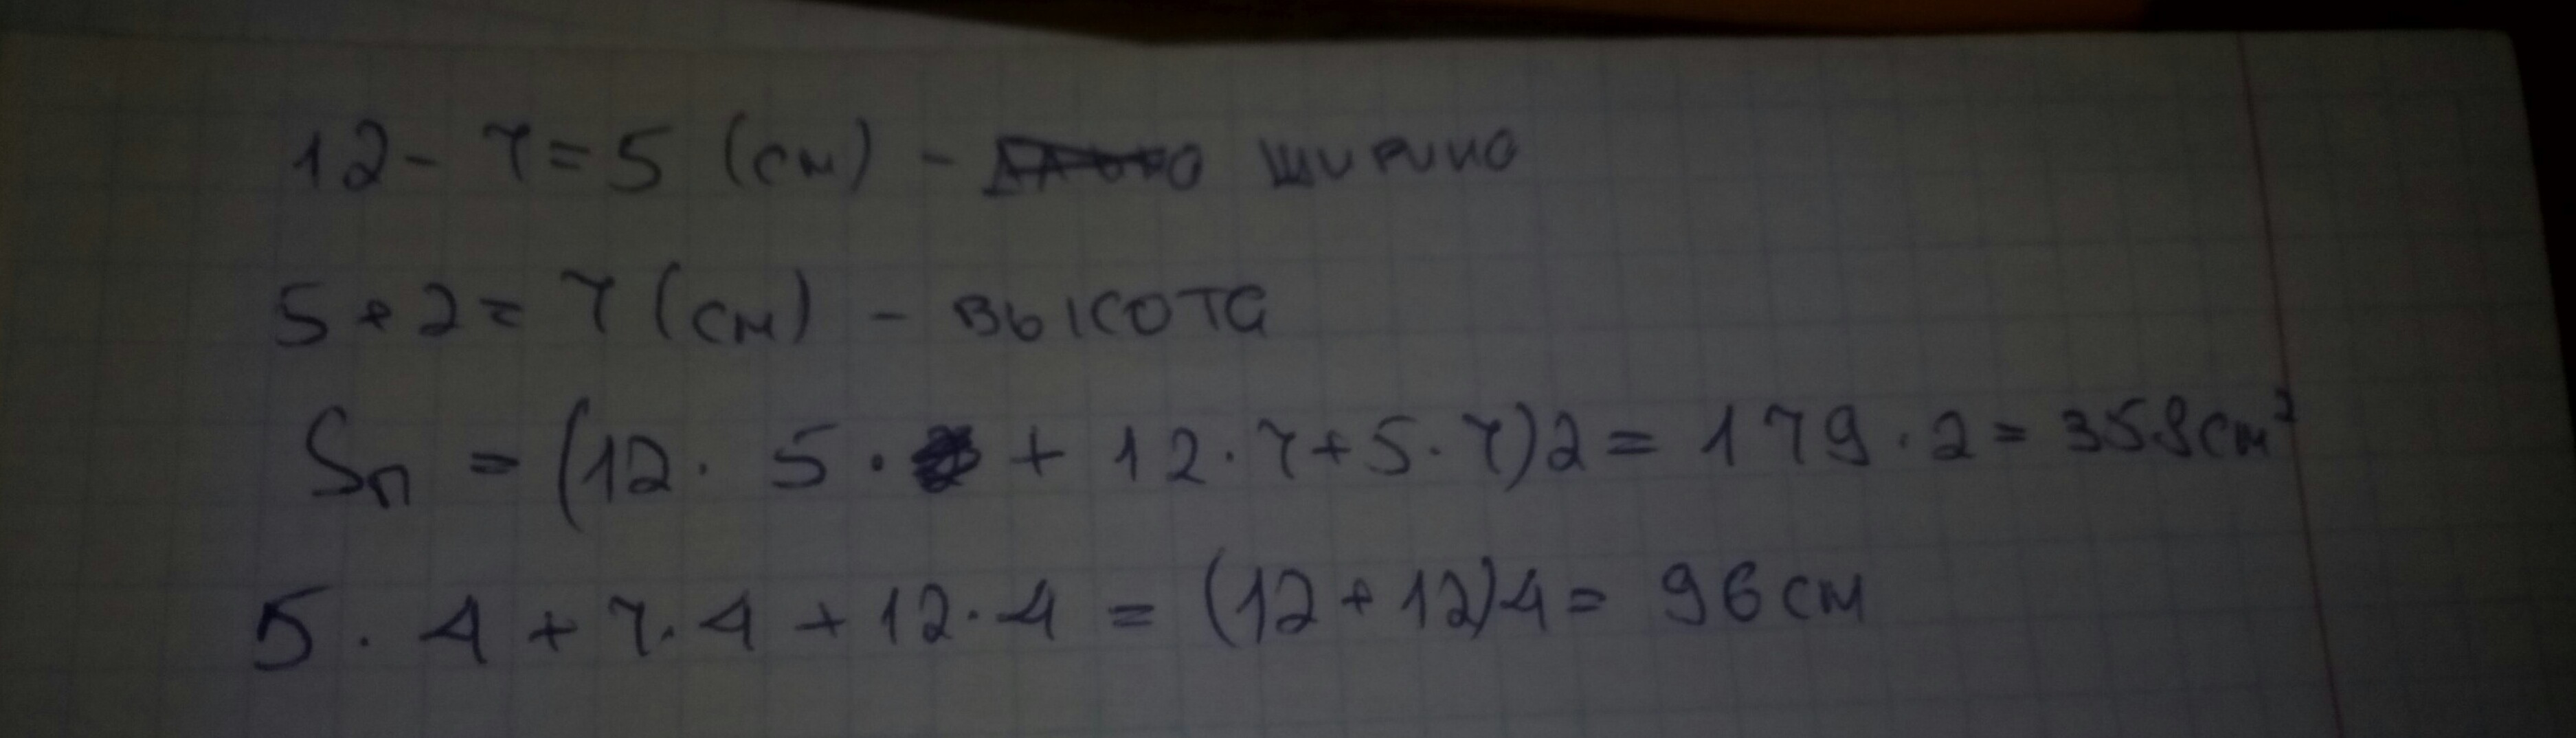 12 - 7 = 5 (см) - ширина
5 + 2 = 7 (см) - высота
Sп = (12 · 5 · + 12 · 7 + 5 · 7)2 = 179 · 2 = 358см²
5 · 4 + 7 · 4 + 12 · 4 = (12 + 12)4 = 96 см